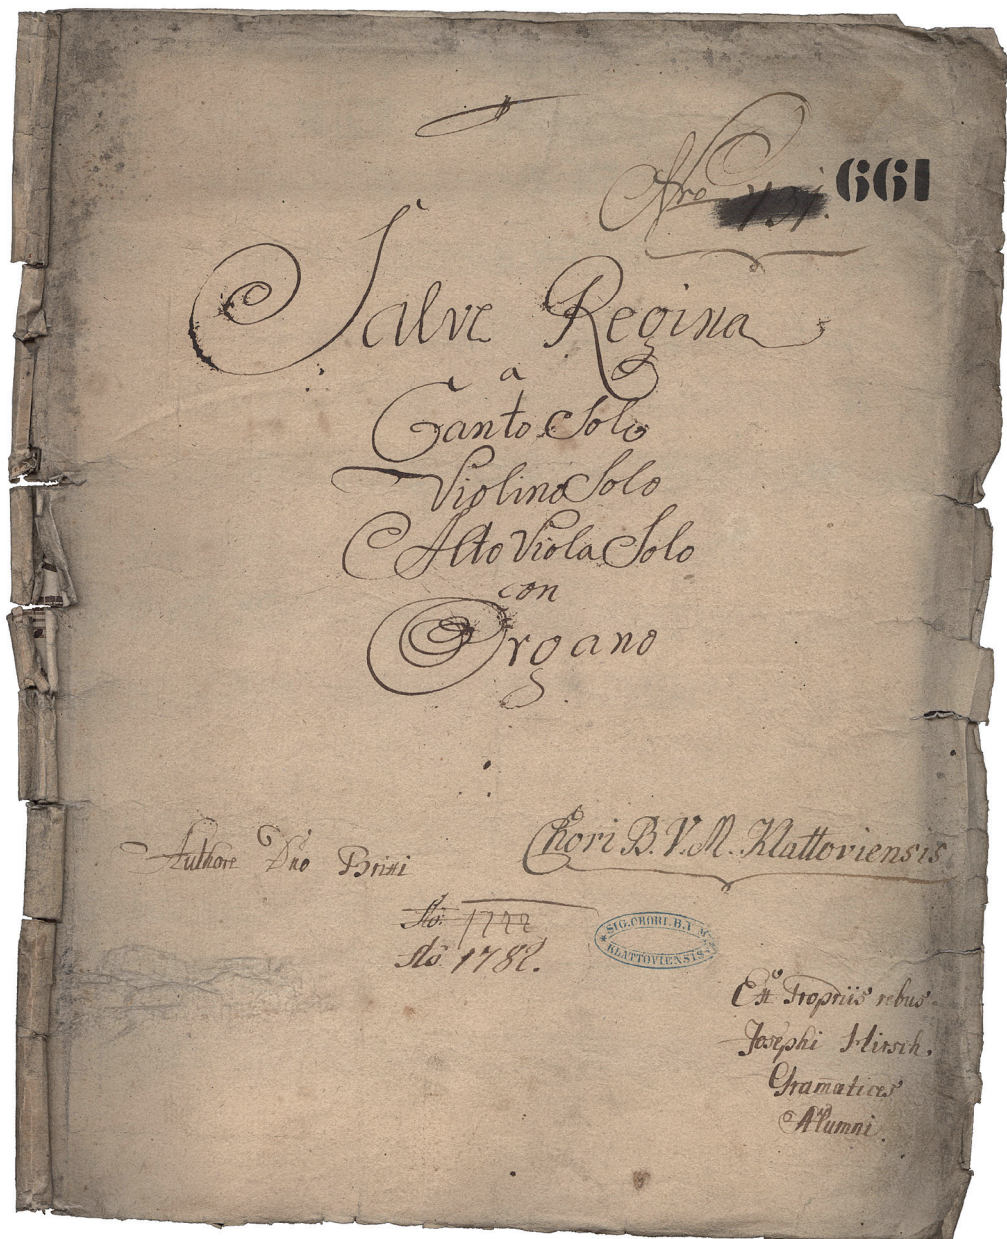 Nro 661
Salve Regina
a
Canto Solo
Violino Solo
Alto Viola Solo
con
Organo
Chori B. V. M. Klattoviensis
Authore Dno Brixi
Ao: 1777
Ao 1782.
SIG. CHORI. B. V. M.
KLATTOVIENSIS
Est Propriis rebus
Josephi Hirsch.
Gramatices
Alumni.